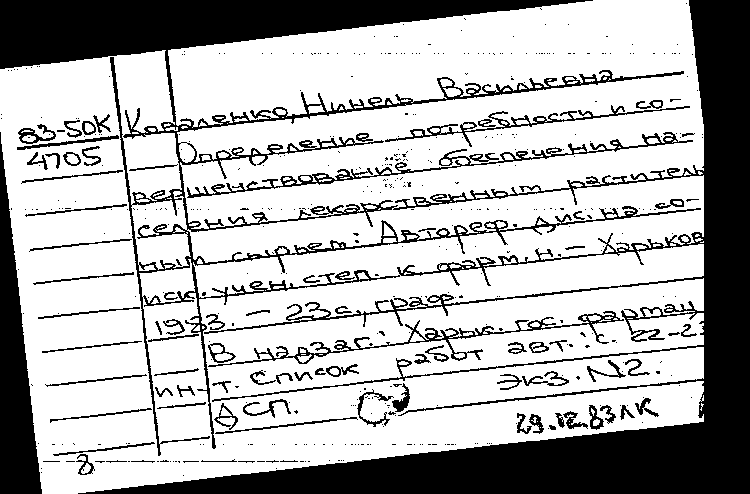 83-50К Коваленко, Нинель Васильевна.
4705 Определение потребности и со-
вершенствование обеспечения на-
селения лекарственным раститель
ным сырьем: Автореф. дис. на со-
иск. учен. степ. к. фарм. н. – Харьков
1983. – 23 с., граф.
В надзаг.: Харьк. гос. фармац
ин-т. Список работ авт.: с. 22-23
ДСП. Экз. N2.
29.12.83 ЛК
8